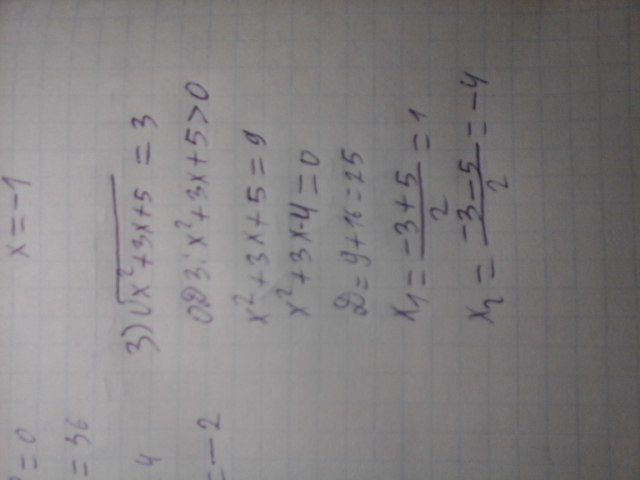 x = -1
3) √x²+3x+5 = 3
ОДЗ: x²+3x+5>0
x²+3x+5=9
x²+3x-4=0
D=9+16=25
x₁ = -3+5/2 = 1
x₂ = -3-5/2 = -4
=0
= 36
4
= -2